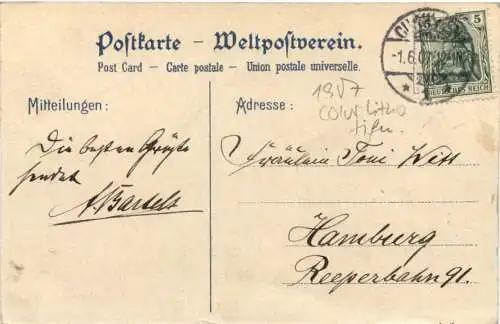 Postkarte – Weltpostverein.
Post Card – Carte postale – Union postale universelle.
Mitteilungen:
Die besten Grüße
sendet
A. Bartels
Adresse:
1907
Color Litho
Fräulein Toni Witt
Hamburg
Reeperbahn 91.
5
-1.6.07
DEUTSCHES REICH